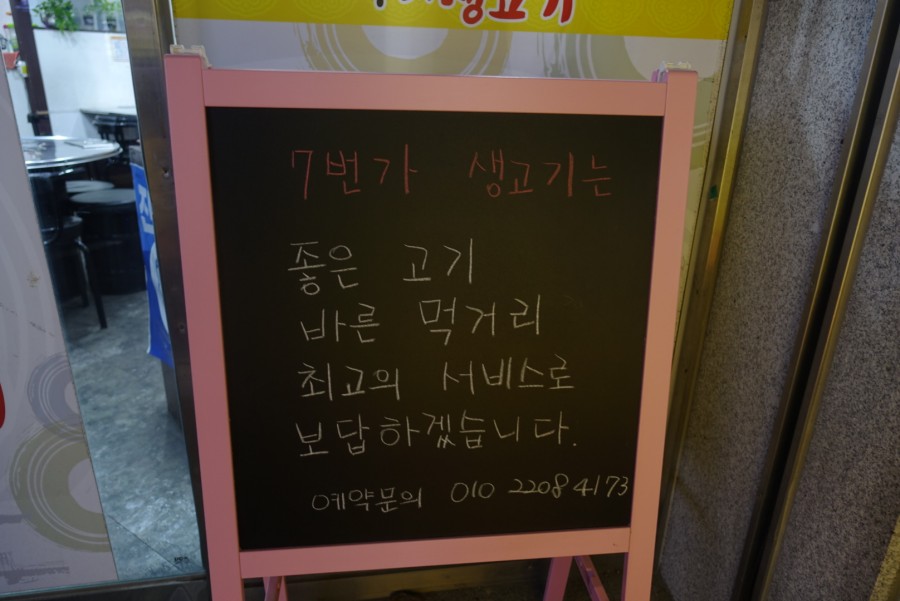 생고기
7번가 생고기는
좋은 고기
바른 먹거리
최고의 서비스로
보답하겠습니다.
예약문의 010 2208 4173